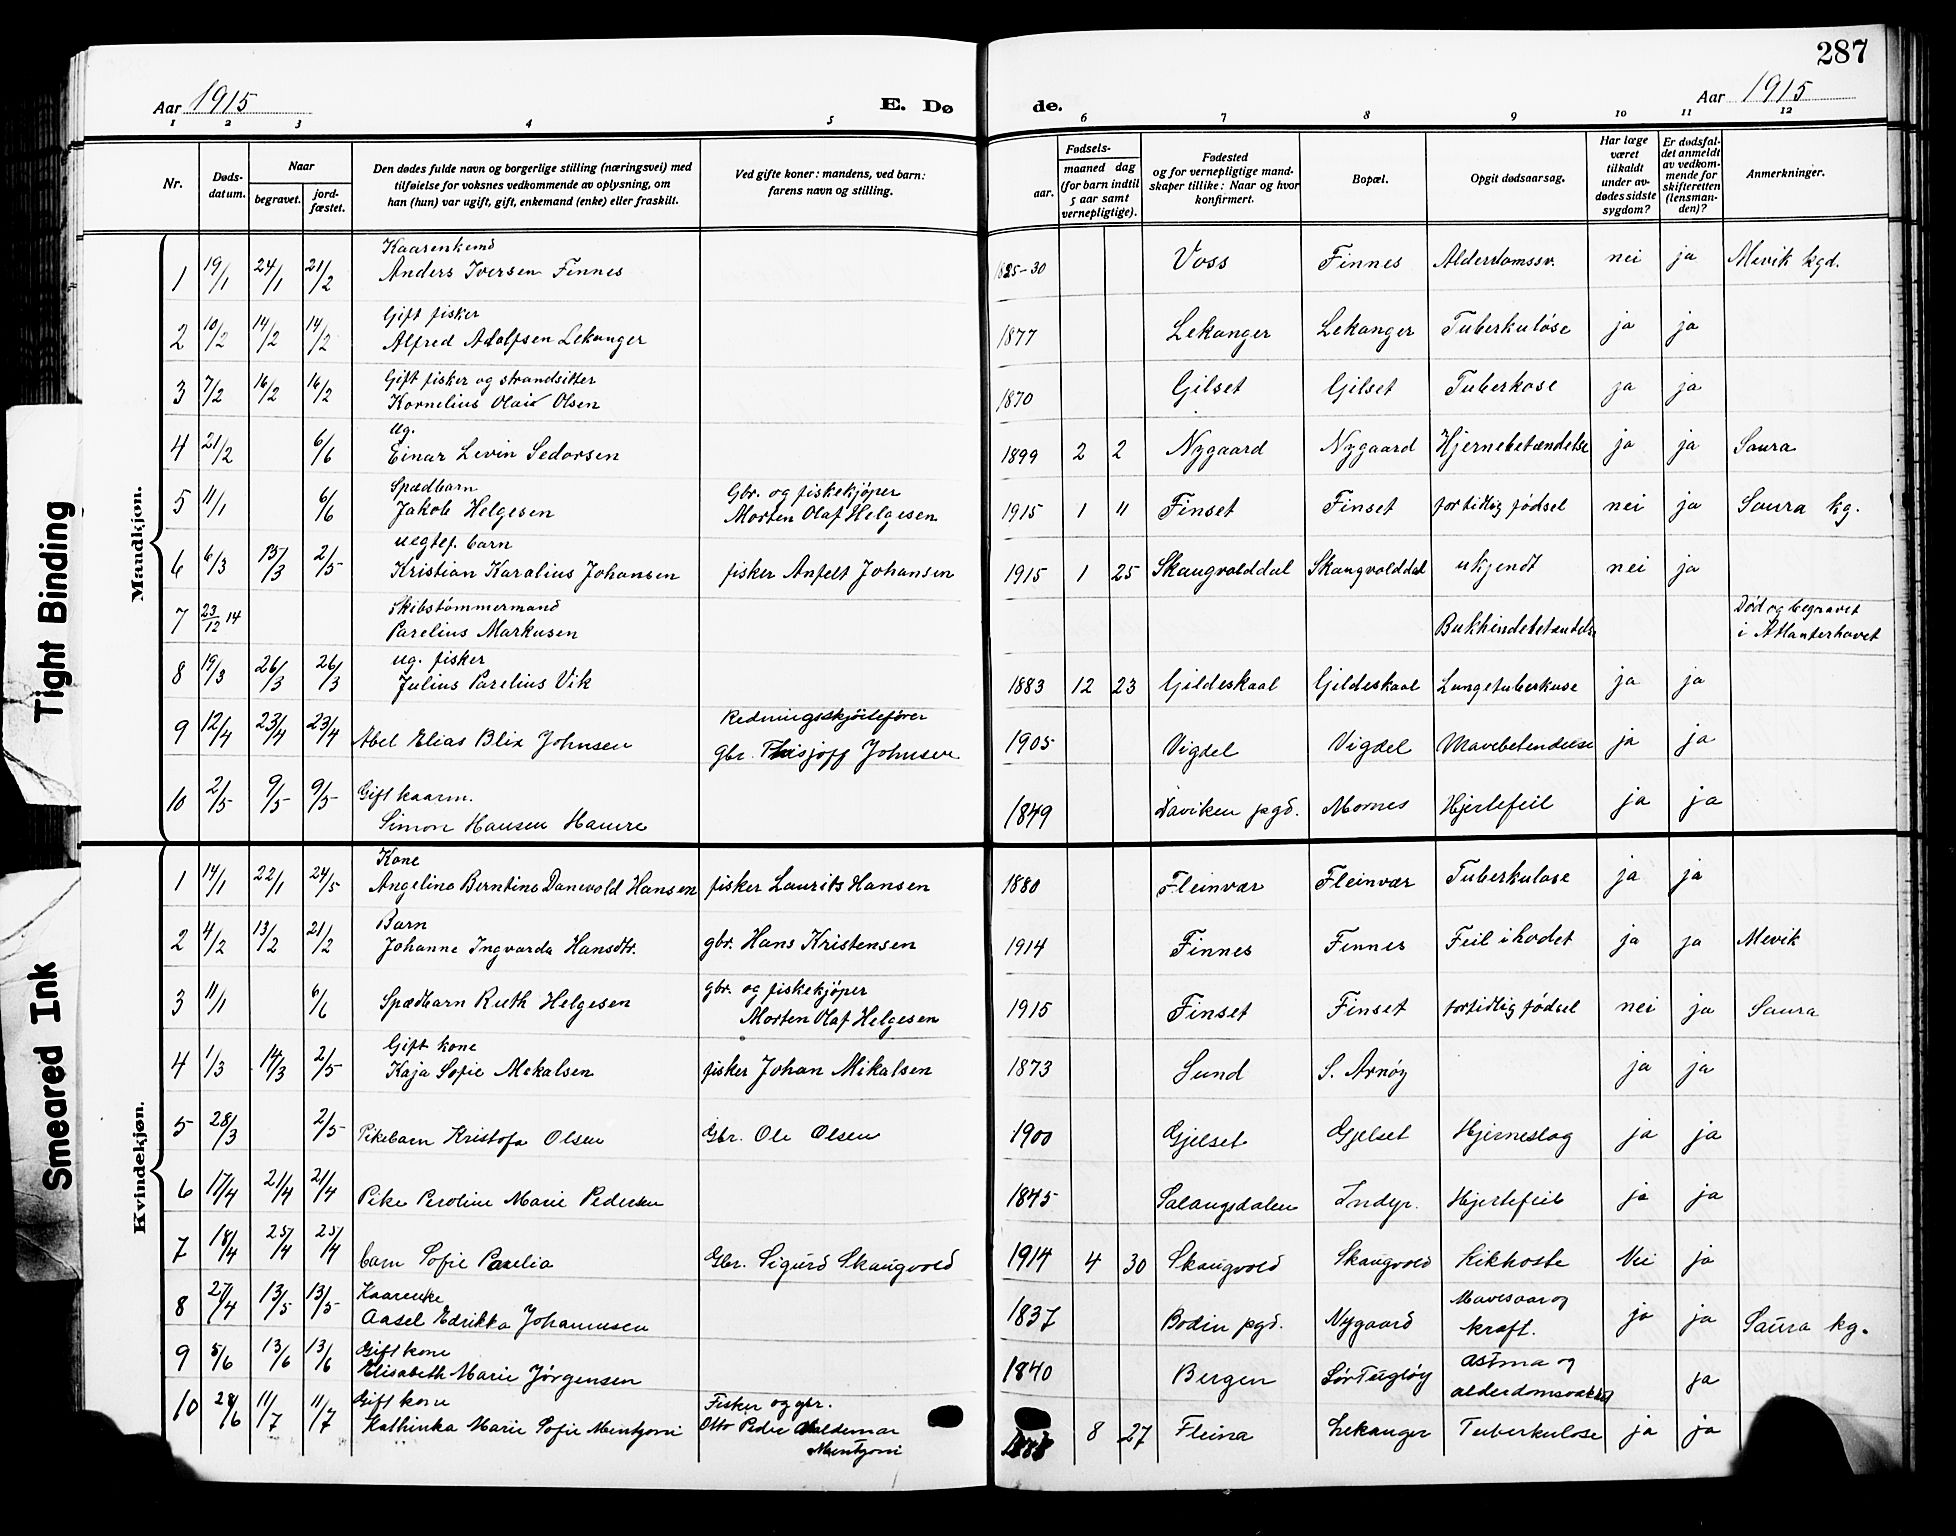 287
Aar 1915
E. Dø
de.
Aar 1915
1 2 3 4 5 6 7 8 9 10 11 12
Nr.
Døds-
datum.
Naar
begravet.
jord-
fæstet.
Den dødes fulde navn og borgerlige stilling (næringsvei) med
tilføielse for voksnes vedkommende av oplysning, om
han (hun) var ugift, gift, enkemand (enke) eller fraskilt.
Ved gifte koner: mandens, ved barn:
farens navn og stilling.
Fødsels-
aar.
maaned dag
(for barn indtil
5 aar samt
vernepligtige).
Fødested
og for vernepligtige mand-
skaper tillike: Naar og hvor
konfirmert.
Bopæl.
Opgit dødsaarsag.
Har læge
været
tilkaldt
under av-
dødes sidste
sygdom?
Er dødsfal-
det anmeldt
av vedkom-
mende for
skifteretten
(lensman-
den)?
Anmerkninger.
Mandkjøn.
Kaarenkemd
1 19/1 24/1 21/2 Anders Iversen Finnes 1825-30 Voss Finnes Alderdomssv. nei ja Mevik kgd.
Gift fisker
2 10/2 14/2 14/2 Alfred Adolfsen Lekanger 1877 Lekanger Lekanger Tuberkuløse ja ja
Gift fisker og strandsitter
3 7/2 16/2 16/2 Kornelius Olai Olsen 1870 Gilset Gilset Tuberkose ja ja
ug.
4 21/2 6/6 Einar Levin Sedorsen 1899 2 2 Nygaard Nygaard Hjernebetændelse ja ja Saura
Spædbarn Gbr. og fiskekjøper
5 11/1 6/6 Jakob Helgesen Morten Olaf Helgesen 1915 1 11 Finset Finset fortidlig fødsel nei ja Saura kg.
uegtef. barn
6 6/3 13/3 2/5 Kristian Karolius Johansen fisker Anfelt Johansen 1915 1 25 Skaugvolddal Skaugvolddal ukjendt nei ja
Skibstømmermand Død og begravet
7 23/12 14 Parelius Markusen Bukhindebetændelse i Atlanterhavet
ug. fisker
8 19/3 26/3 26/3 Julius Parelius Vik 1883 12 23 Gildeskaal Gildeskaal Lungetuberkuse ja ja
Redningsskjøitefører
9 12/4 23/4 23/4 Abel Elias Blix Johnsen Gbr. Johnsen 1905 Vigdel Vigdel Mavebetendelse ja ja
Gift kaarm.
10 2/5 9/5 9/5 Simon Hansen Hamre 1849 Daviken pgd. Mornes Hjertefeil ja ja
Kvindekjøn.
Kone
1 14/1 22/1 24/5 Angelina Berntine Danevold Hansen fisker Laurits Hansen 1880 Fleinvær Fleinvær Tuberkulose ja ja
Barn
2 4/2 13/2 21/2 Johanne Ingvarda Hansdtr. gbr. Hans Kristensen 1914 Finnes Finnes Feil i hodet ja ja Mevik
gbr. og fiskekjøper
3 11/1 6/6 Spædbarn Ruth Helgesen Morten Olaf Helgesen 1915 Finset Finset fortidlig fødsel nei ja Saura
Gift kone
4 1/3 14/3 2/5 Kaja Sofie Mekalsen fisker Johan Mikalsen 1873 Sund S. Arnøy ja ja
5 28/3 2/5 Pikebarn Kristofa Olsen Gbr. Ole Olsen 1900 Gjelset Gjelset Hjerneslag ja ja
6 17/4 21/4 21/4 Pike Peroline Marie Pedersen 1845 Salangsdalen Indyr. Hjertefeil ja ja
7 18/4 25/4 25/4 barn Sofie Parelia Gbr. Sigurd Skaugvold 1914 4 30 Skaugvold Skaugvold Kikhoste Nei ja
Kaarenke Mavesaar og
8 27/4 13/5 13/5 Aasel Edrikka Johannesen 1837 Bodin pgd. Nygaard kræft. ja ja Saura kg.
Gift kone Astma og
9 5/6 13/6 13/6 Elisabeth Marie Jørgensen 1840 Bergen Sør Fugløy alderdomssvakhet ja
Gift kone Fisker og gbr.
10 28/6 11/7 11/7 Kathinka Marie Sofie Mentzoni Otto Peder Valdemar 8 27 Fleina Lekanger Tuberkulose ja ja
Mentzoni
Tight Binding
Smeared Ink